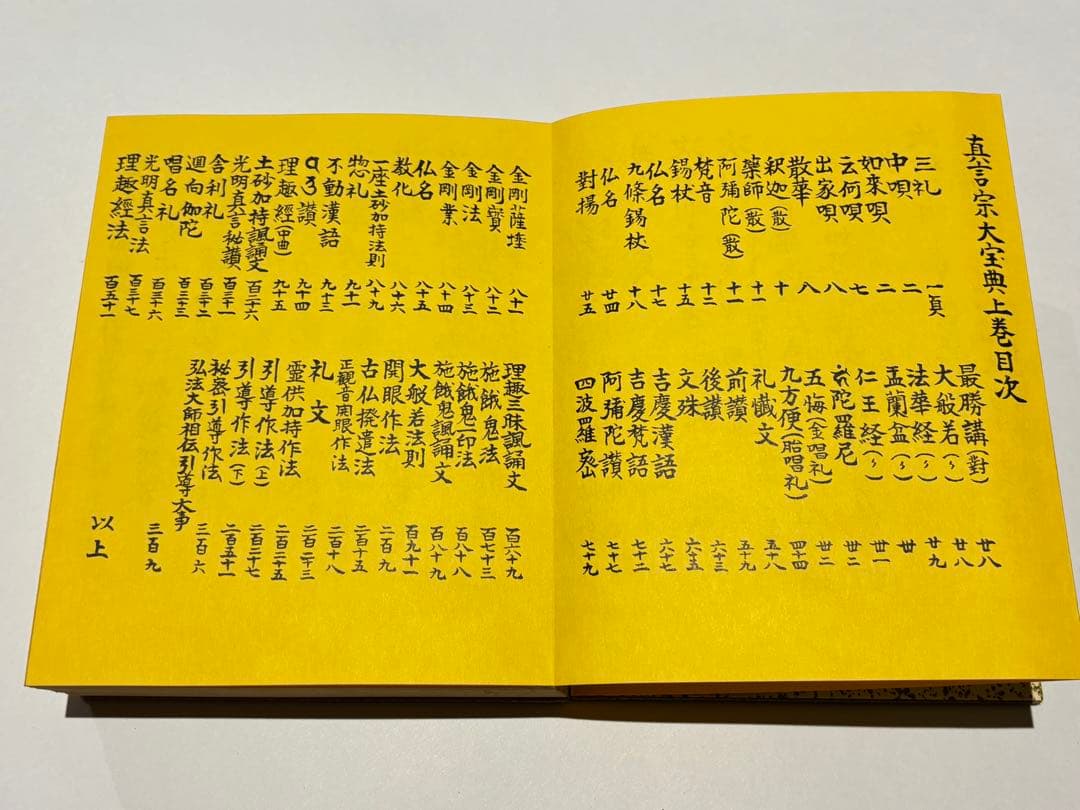 真言宗大宝典上巻目次
三礼 一頁
中唄 二
如来唄 二
云何唄 七
出家唄 八
散華 八
釈迦(散) 十
藥師(散) 十一
阿彌陀(散) 十一
梵音 十二
錫杖 十五
仏名 十七
九條錫杖 十八
仏名 廿四
對揚 廿五
最勝講(對) 廿八
大般若(〃) 廿八
法華経(〃) 廿九
盂蘭盆(〃) 卅
仁王経(〃) 卅一
陀羅尼 卅二
五悔(金唱礼) 卅二
九方便(胎唱礼) 四十四
礼懺文 五十八
前讃 五十九
後讃 六十三
文殊 六十五
吉慶漢語 六十七
吉慶梵語 七十二
阿彌陀讃 七十七
四波羅蜜 七十九
金剛薩埵 八十一
金剛寳 八十二
金剛法 八十三
金剛業 八十四
仏名 八十五
教化 八十六
一座土砂加持法則 八十九
惣礼 九十一
不動漢語 九十三
讃 九十四
理趣経(中曲) 九十五
土砂加持諷誦文 百二十六
光明真言秘讃 百三十一
舎利礼 百三十二
廻向伽陀 百三十三
唱名礼 百三十六
光明真言法 百三十七
理趣経法 百五十一
理趣三昧諷誦文 百六十九
施餓鬼法 百七十三
施餓鬼印法 百八十八
施餓鬼諷誦文 百八十九
大般若法則 百九十一
開眼作法 二百九
古仏撥遣法 二百十五
正観音開眼作法 二百十八
礼文 二百二十三
霊供加持作法 二百二十五
引導作法(上) 二百二十七
引導作法(下) 二百五十一
秘密引導作法 三百六
弘法大師相伝引導大事 三百九
以上